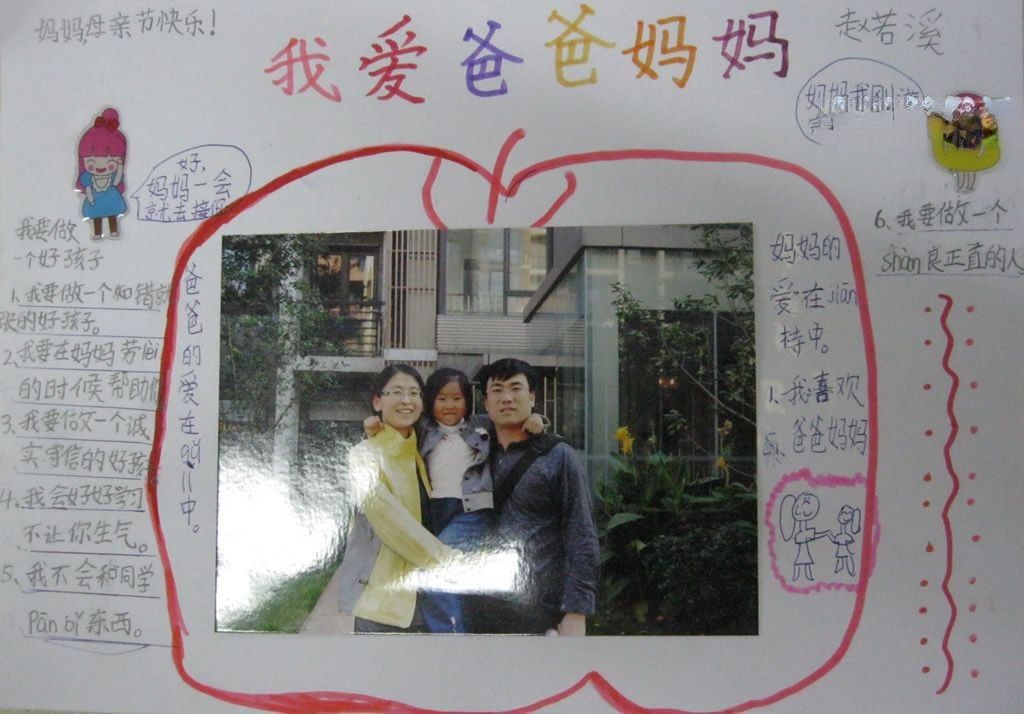 妈妈母亲节快乐!
我爱爸爸妈妈
赵若溪
妈妈我刚
好,
妈妈一会
就去接你
我要做
一个好孩子
1、我要做一个知错就
的好孩子。
2、我要在妈妈劳
的时候帮助你
3、我要做文一个诚
实守信的好孩
4、我会好好学习
不让你生气。
5、我不会和同学
Pān bǐ东西。
爸爸的爱在
中。
妈妈的
爱在jiān
持中。
1、我喜欢
爸爸妈妈
6、我要做文一个
shàn良正直的人